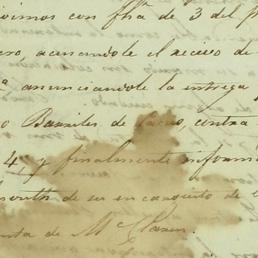 vimos con fha de 3 del p
ero, acusandole el recivo de
a, anunciandole la entrega
o Barriles de contra
4, y finalmente inform
de ser en conjunto de
nta de Mc